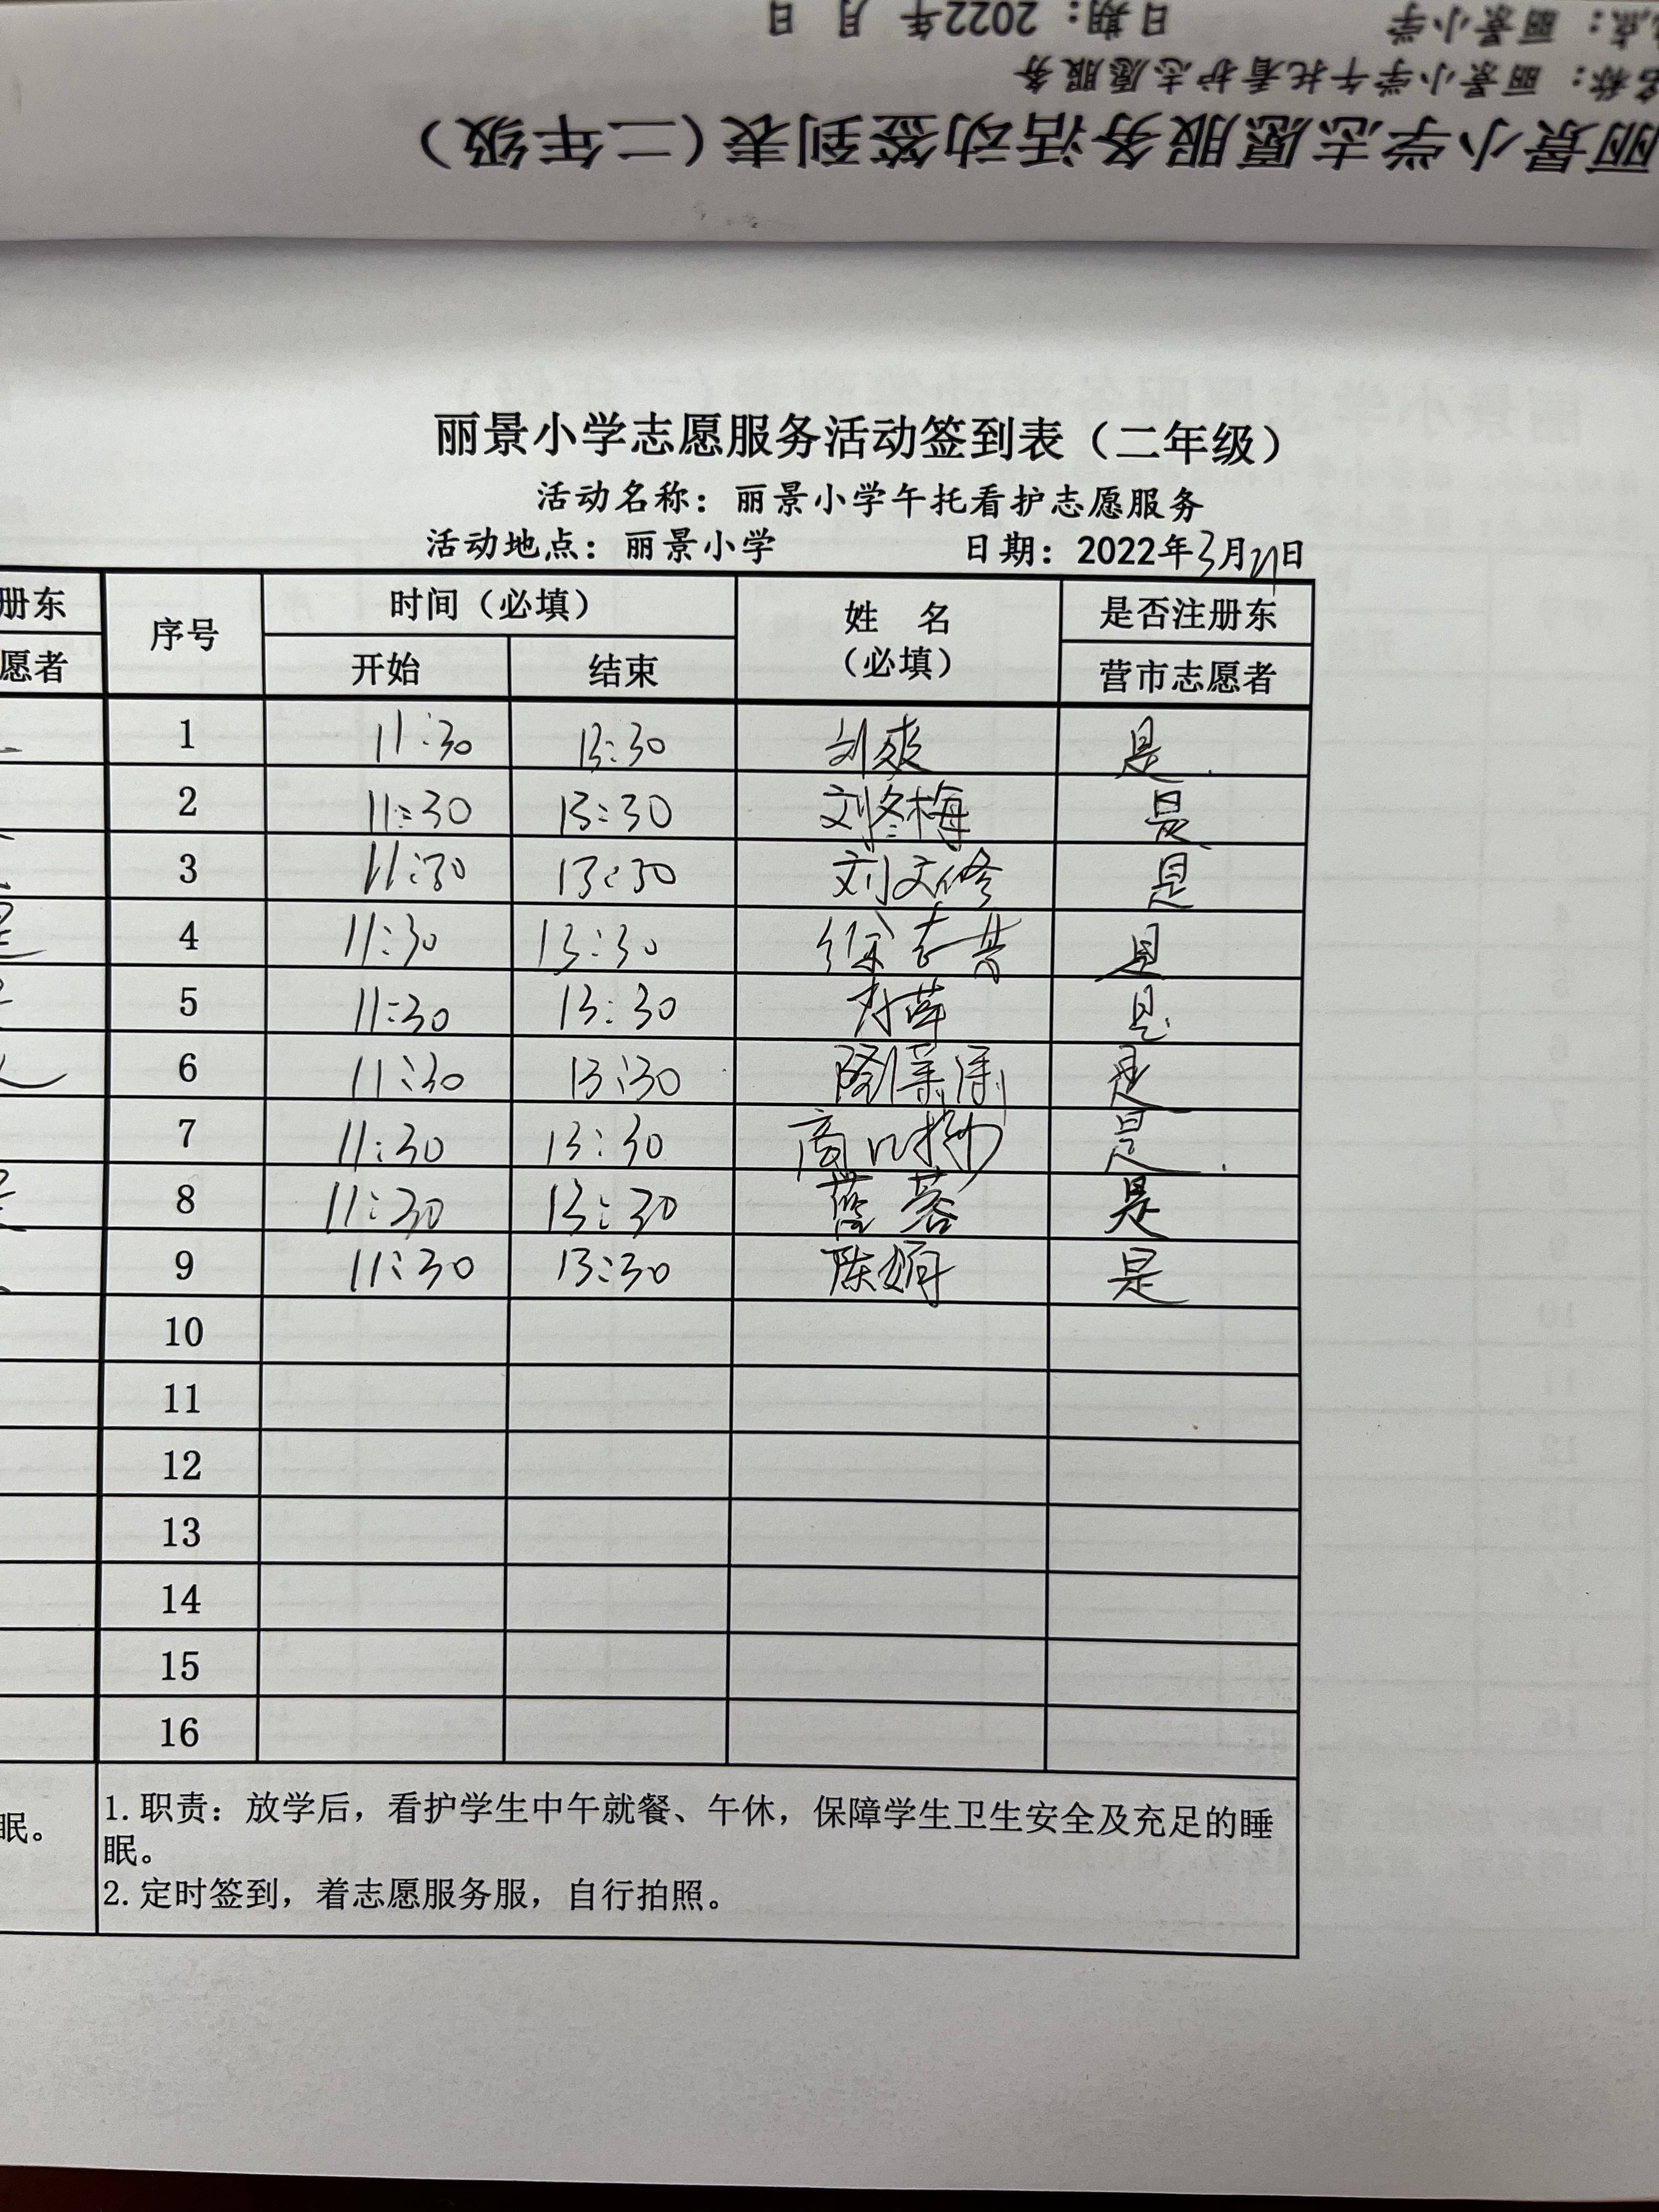 点：丽景小学 日期：2022年 月 日
名称：丽景小学午托看护志愿服务
丽景小学志愿服务活动签到表（二年级）
丽景小学志愿服务活动签到表（二年级）
活动名称：丽景小学午托看护志愿服务
活动地点：丽景小学 日期：2022年3月21日
册东 序号 时间（必填） 姓 名 是否注册东
愿者 开始 结束 （必填） 营市志愿者
1 11:30 13:30 刘爽 是
2 11:30 13:30 刘冬梅 是
3 11:30 13:30 刘文修 是
4 11:30 13:30 徐 是
5 11:30 13:30 是
6 11:30 13:30 是
7 11:30 13:30 商 是
8 11:30 13:30 蓉 是
9 11:30 13:30 陈娟 是
10
11
12
13
14
15
16
眠。 1.职责：放学后，看护学生中午就餐、午休，保障学生卫生安全及充足的睡
眠。
2.定时签到，着志愿服务服，自行拍照。